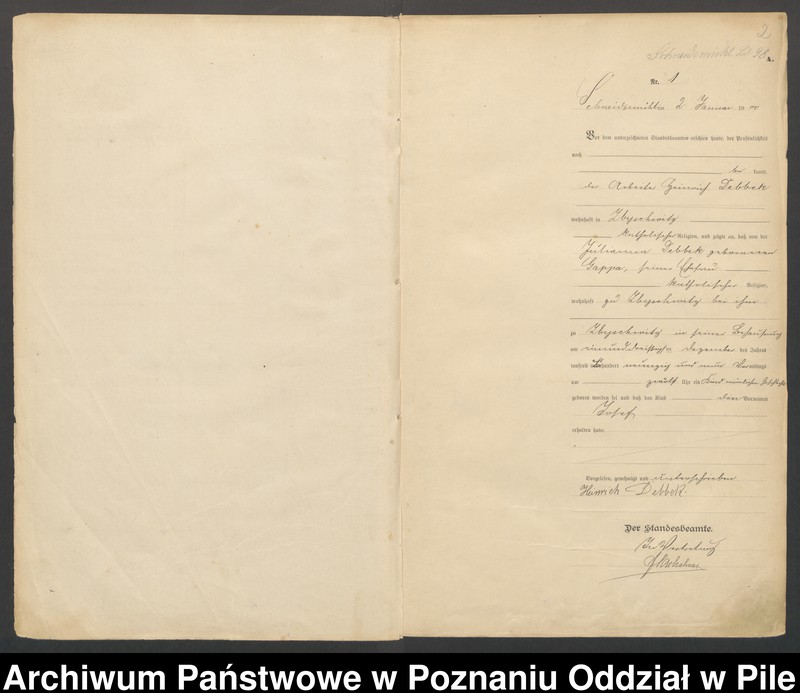 2
A.
Nr. 1
Schneidemühl am 2 Januar 19 00
Vor dem unterzeichneten Standesbeamten erschien heute, der Persönlichkeit
nach
be kannt,
der Arbeiter Heinrich Debbek
wohnhaft in Zbyschewitz
katholischer Religion, und zeigte an, daß von der
Julianna Debbek geborenen
Gappa, seiner Ehefrau
katholischer Religion,
wohnhaft zu Zbyschewitz bei ihm
zu Zbyschewitz in seiner Behausung
am einunddreißigsten Dezember des Jahres
tausend achthundert neunzig und neun Vormittags
um zwölf Uhr ein Kind männlichen Geschlechts
geboren worden sei und daß das Kind den Vornamen
Josef
erhalten habe.
Vorgelesen, genehmigt und unterschrieben
Heinrich Debbek.
Der Standesbeamte.
In Vertretung
Archiwum Państwowe w Poznaniu Oddział w Pile